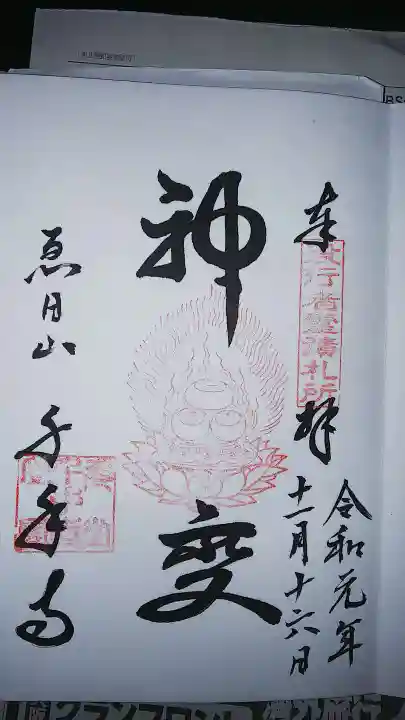 奉拝
役行者霊蹟札所
令和元年
十一月十六日
神変
恵日山 千手寺